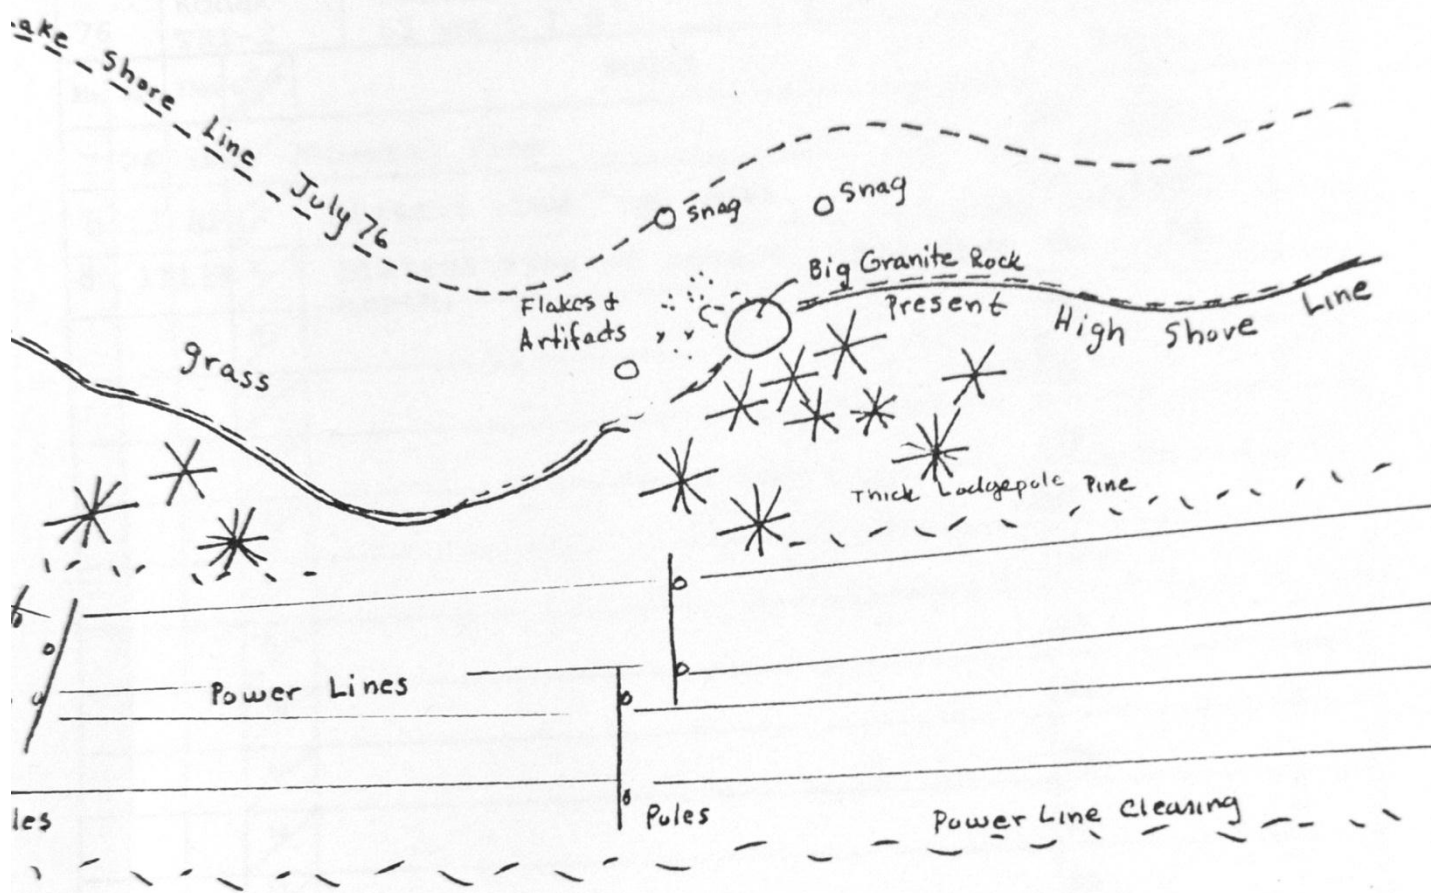 ake Shore Line July 76
Snag
Snag
Big Granite Rock
Flakes +
Artifacts
Present High Shore Line
grass
Thick Lodgepole Pine
Power Lines
les
Poles
Power Line Clearing